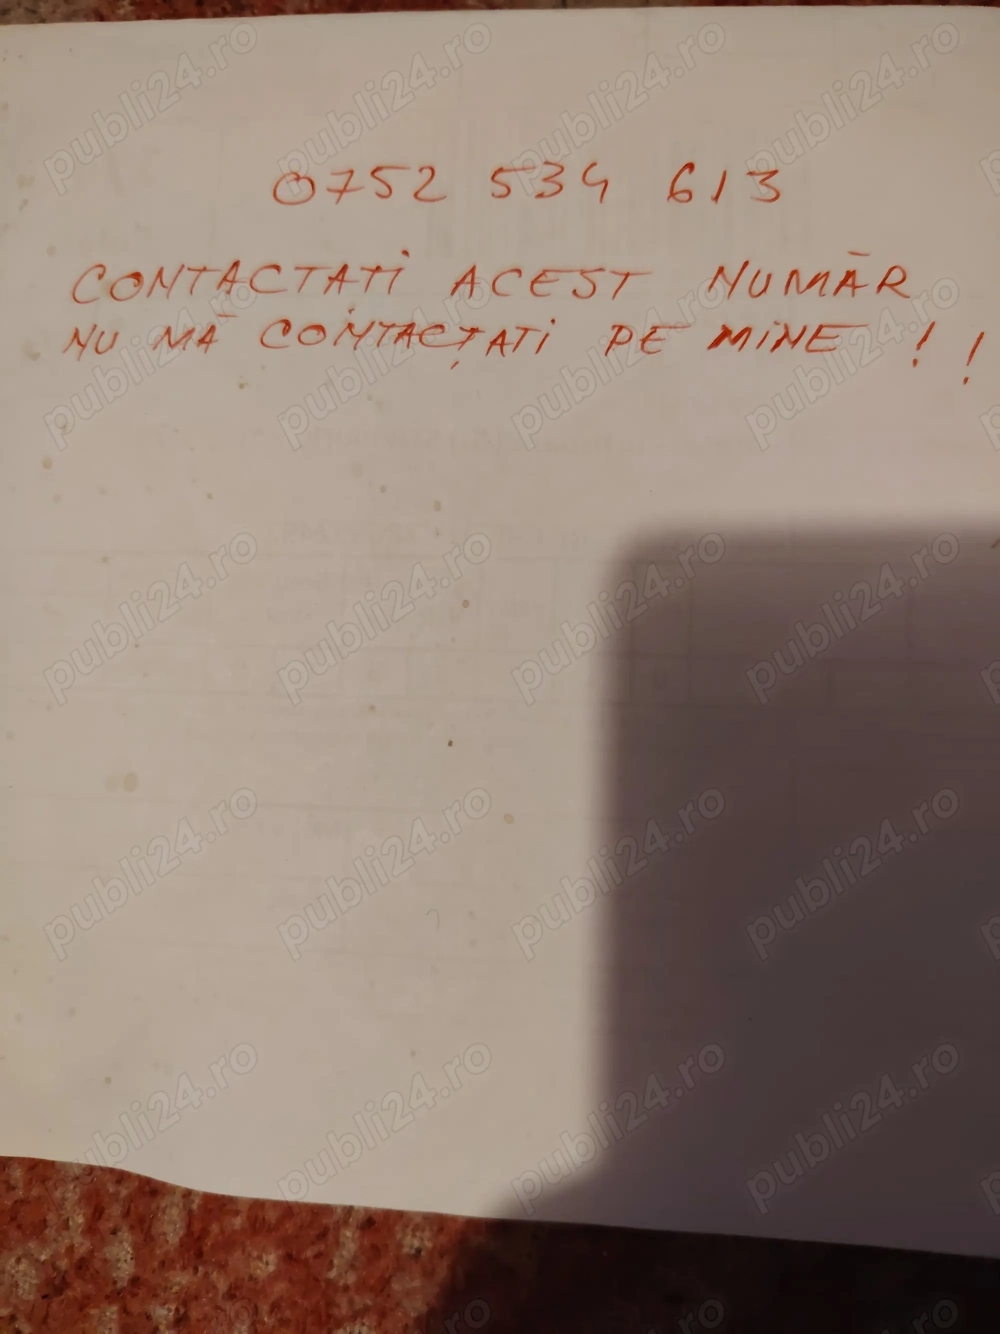 0752 534 613
CONTACTATI ACEST NUMĂR
NU MĂ CONTACȚATI PE MINE ! !
publi24.ro